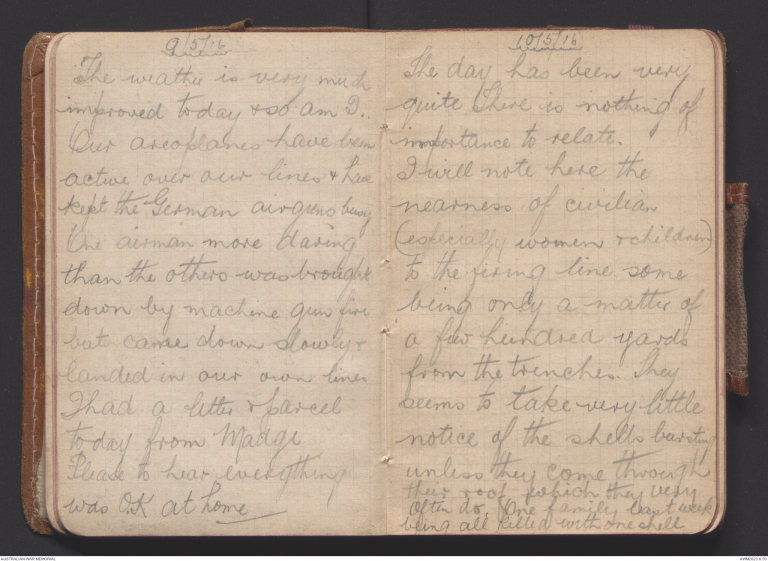 9/5/16
The weather is very much
improved today & so am I..
Our areoplanes have been
active over our lines & have
kept the German airguns busy
One airman more daring
than the others was brought
down by machine gun fire
but came down slowly &
landed in our own lines
I had a letter & parcel
today from Madge
Please to hear everything
was O.K at home
10/5/16
The day has been very
quite There is nothing of
importance to relate.
I will note here the
nearness of civilian
(especially women & children)
to the firing line some
being only a matter of
a few hundred yards
from the trenches. They
seems to take very little
notice of the shells bursting
unless they come through
their roof which they very
often do. One family last week
being all killed with one shell
AUSTRALIAN WAR MEMORIAL